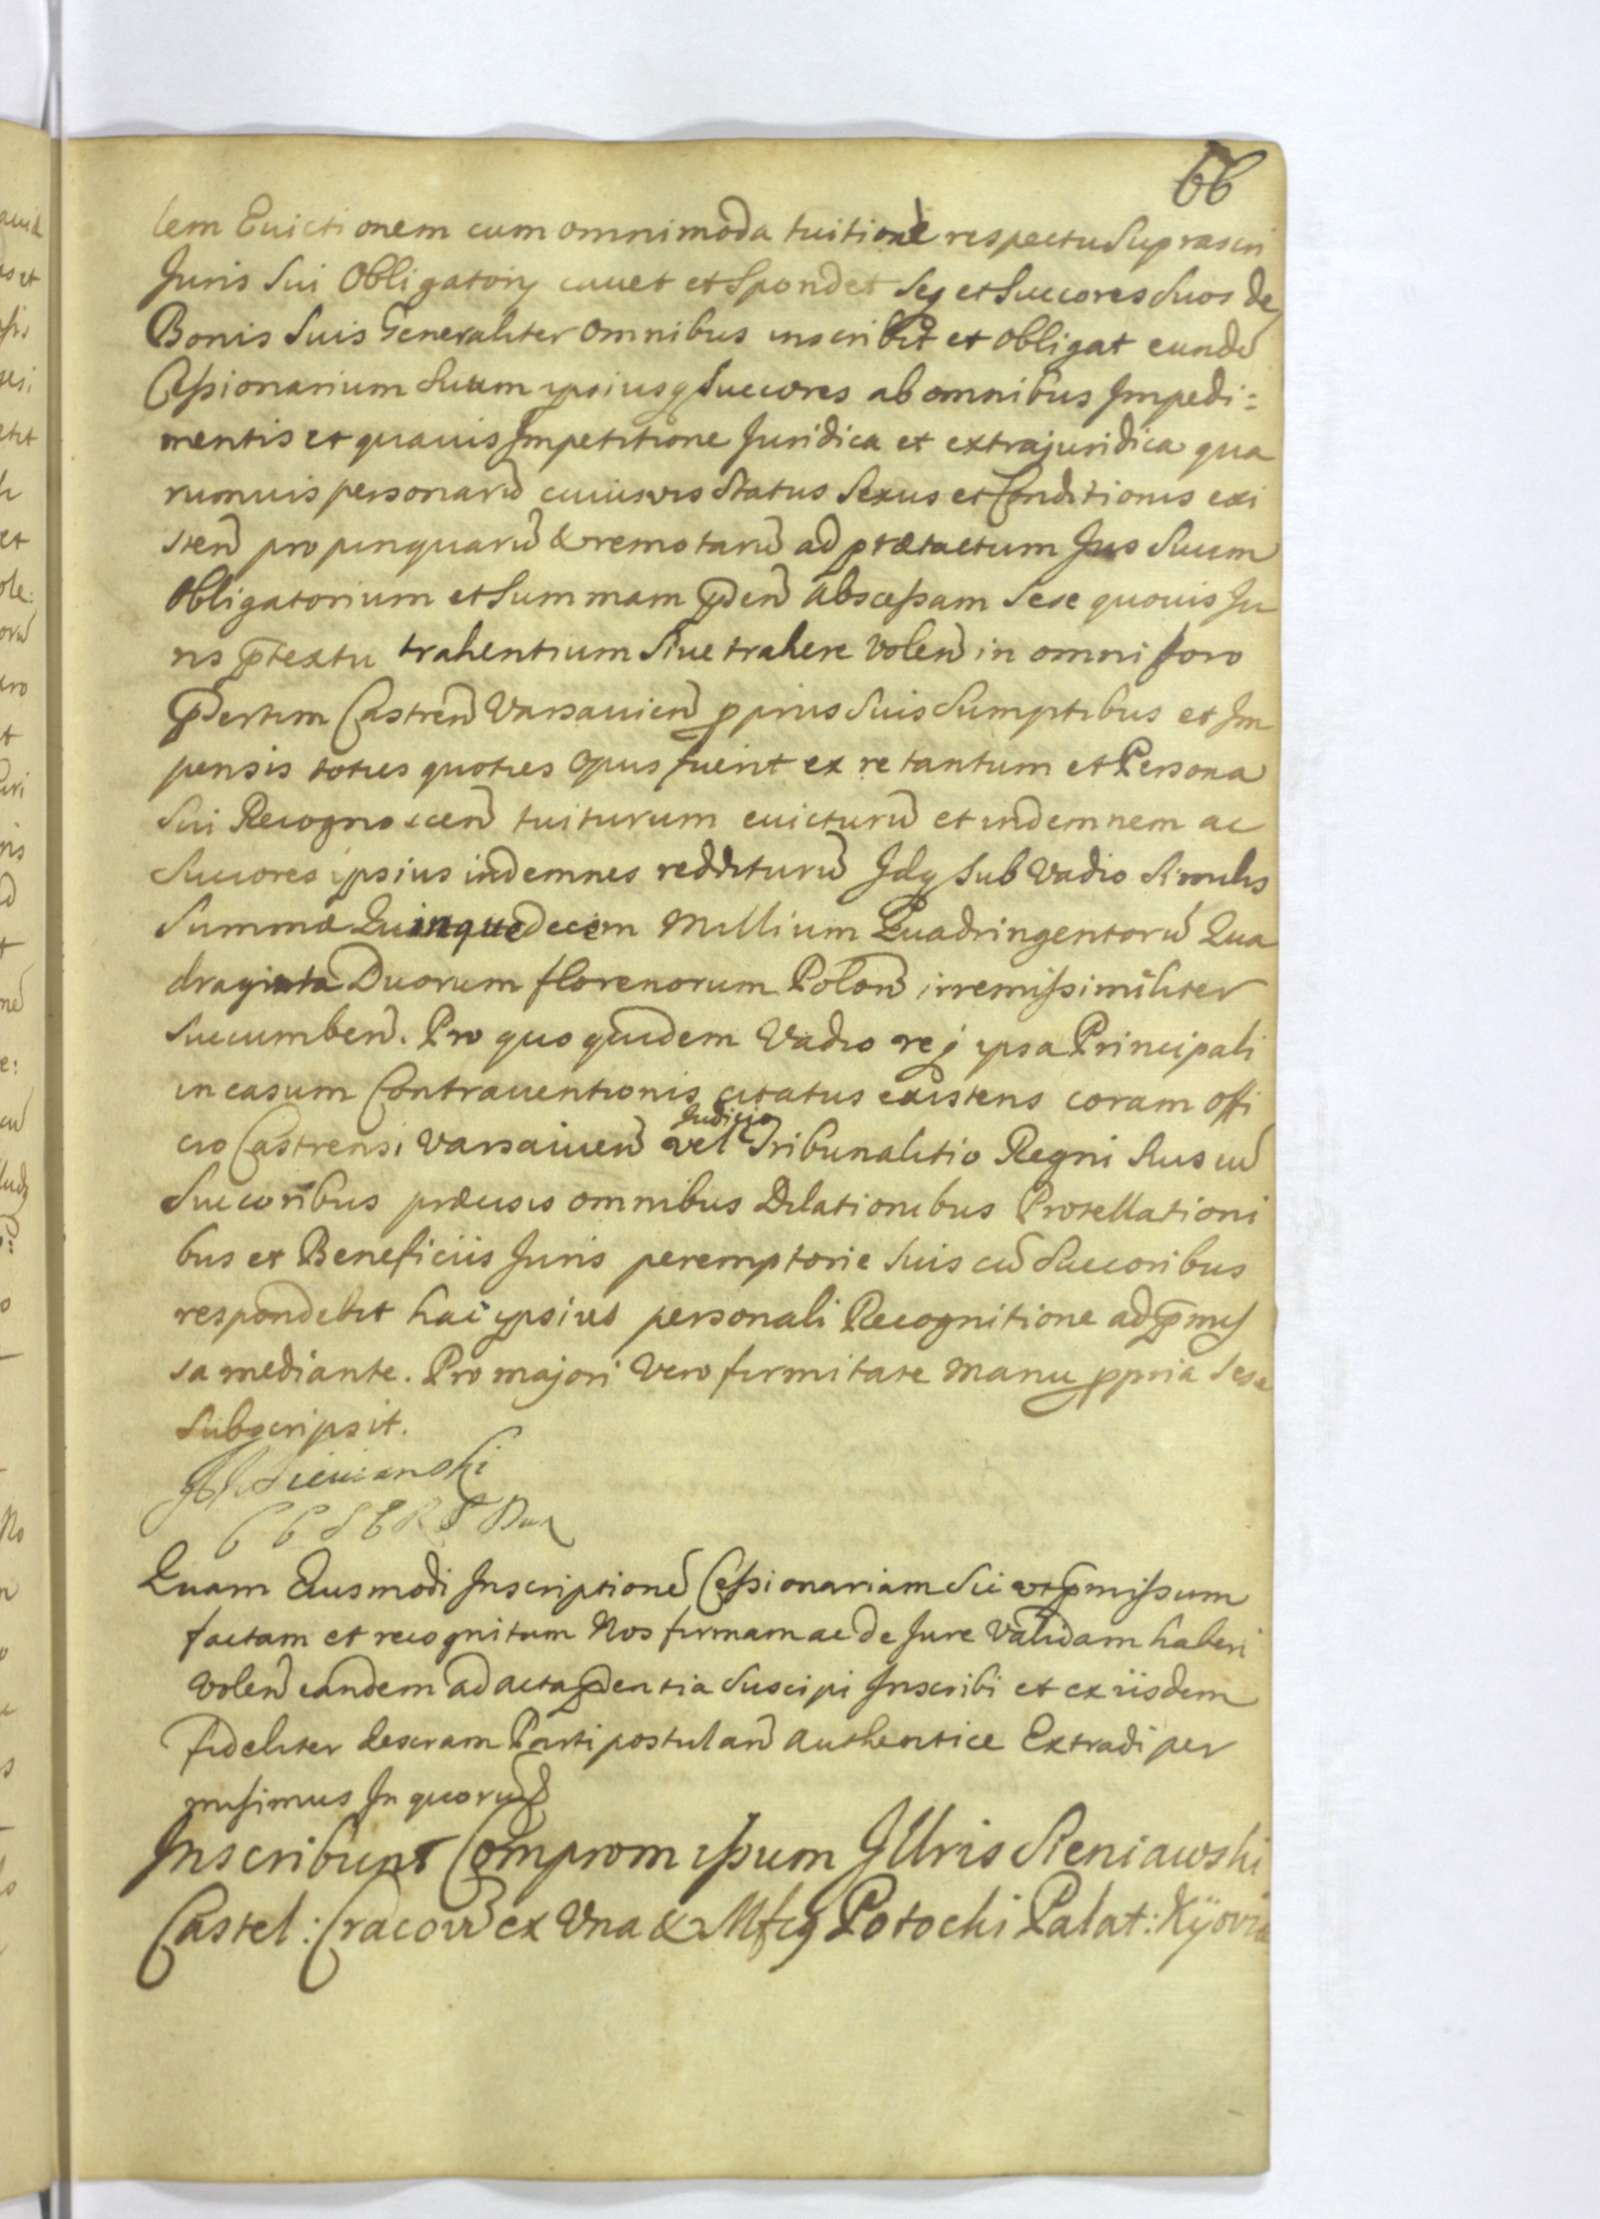 66
lem Euictionem cum omnimoda tuitione respectu Suprascri
Juris Sui Obligatorÿ cauet et Spondet Seq et Succores Suos de
Bonis Suis Generaliter omnibus inscribit et obligat eundē
Cessionarium Suum ipsiusq Succores ab omnibus Impedi:
mentis et quauis Impetitione Juridica et extrajuridica qua
rumuis personarū cuiusvis Status Sexus et Conditionis exi
sten propinquarū & remotarū ad prætactum Jus Suum
Obligatorium et Summam pden abscessam Sese quouis Ju
ris ptextu trahentium Siue trahere Volen in omni foro
psertim Castren Varsauien pprius Suis Sumptibus et Im
pensis toties quoties Opus fuerit ex re tantum et Persona
Sui Recognoscen tuiturum euicturū et indemnem ac
Succores ipsius indemnes redditurū Idq Sub Vadio Similis
Summæ Quinquedecem Millium Quadringentorū Qua
draginta Duorum florenorum Polon irremissimiliter
Succumben. Pro quo quidem Vadio reque ipsa Principali
in casum Contrauentionis citatus existens coram offi
cio Castrensi Varsauien vel Judicio Tribunalitio Regni Suis cū
Succoribus præcisis omnibus Dilationibus Protellationi
bus et Beneficiis Juris peremptorie Suis cū Succoribus
respondebit hac ipsius personali Recognitione ad pmis
sa mediante. Pro majori Vero firmitate Manu ppria Sese
Subscripsit.
Sieniawski
Quam Eiusmodi Inscriptionē Cessionariam Sic ut pmissum
factam et recognitam Nos firmam ac de Jure Validam haberi
Volen eandem ad acta pdentia Suscipi Inscribi et ex iisdem
fideliter descram Parti postulan authentice Extradi per
misimus In quorū
Inscribunt Compromissum Jllris Sieniawski
Castel: Cracovn ex Vna & Mfcq Potocki Palat: Kÿoviæ